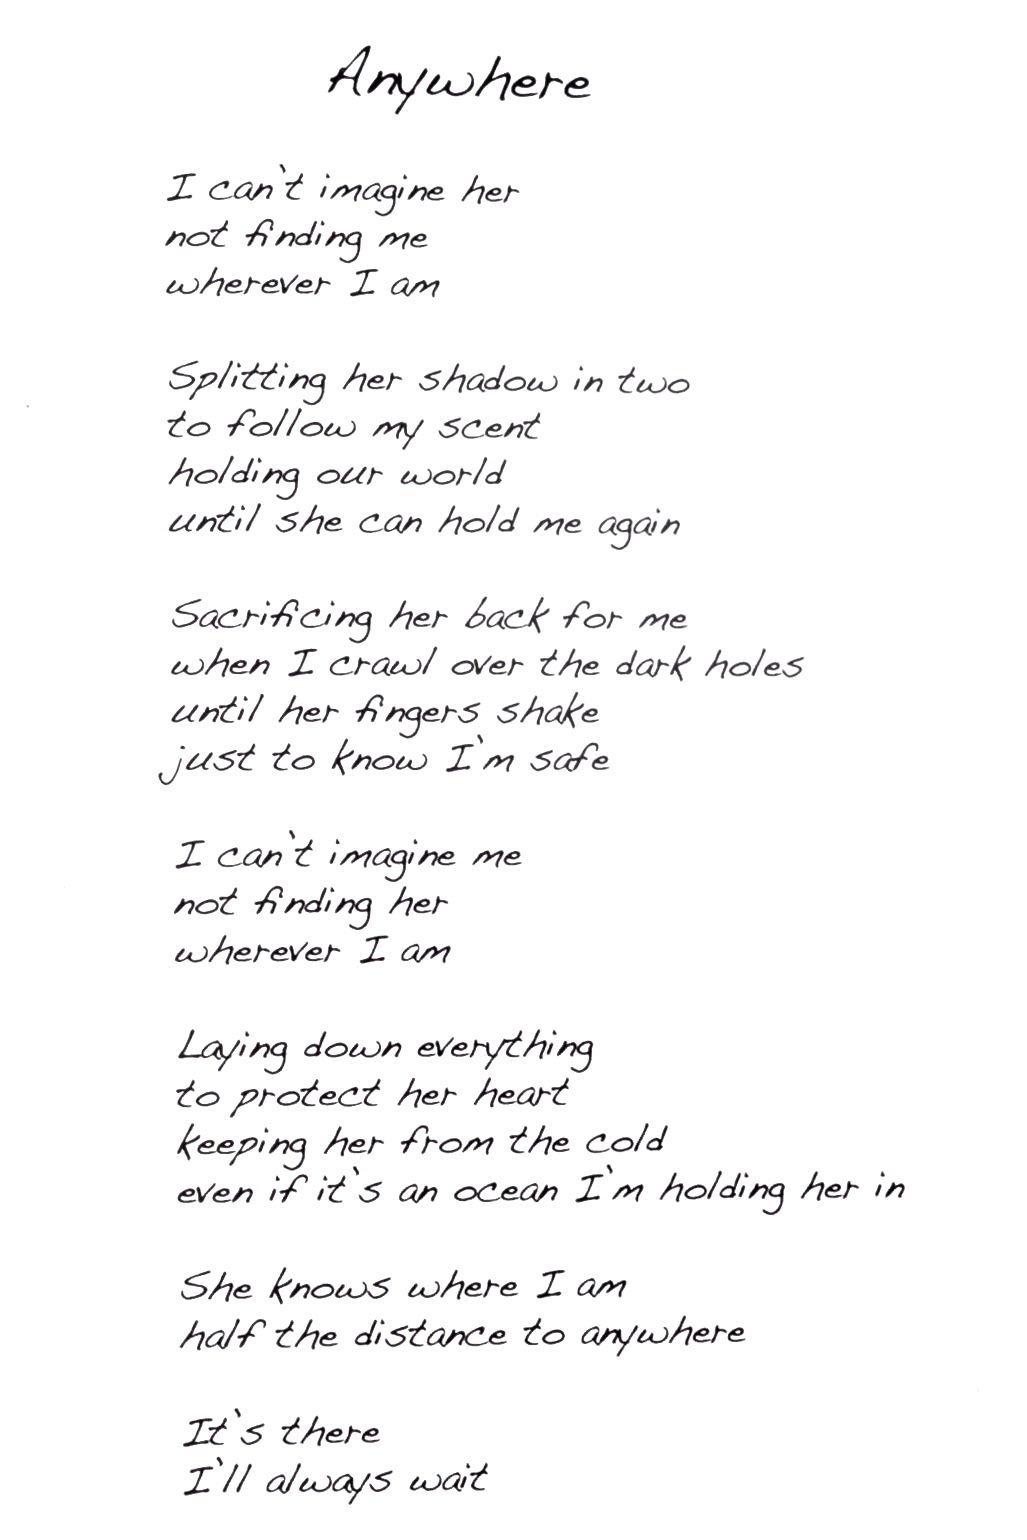 Anywhere
I can't imagine her
not finding me
wherever I am
Splitting her shadow in two
to follow my scent
holding our world
until she can hold me again
Sacrificing her back for me
when I crawl over the dark holes
until her fingers shake
just to know I'm safe
I can't imagine me
not finding her
wherever I am
Laying down everything
to protect her heart
keeping her from the cold
even if it's an ocean I'm holding her in
She knows where I am
half the distance to anywhere
It's there
I'll always wait